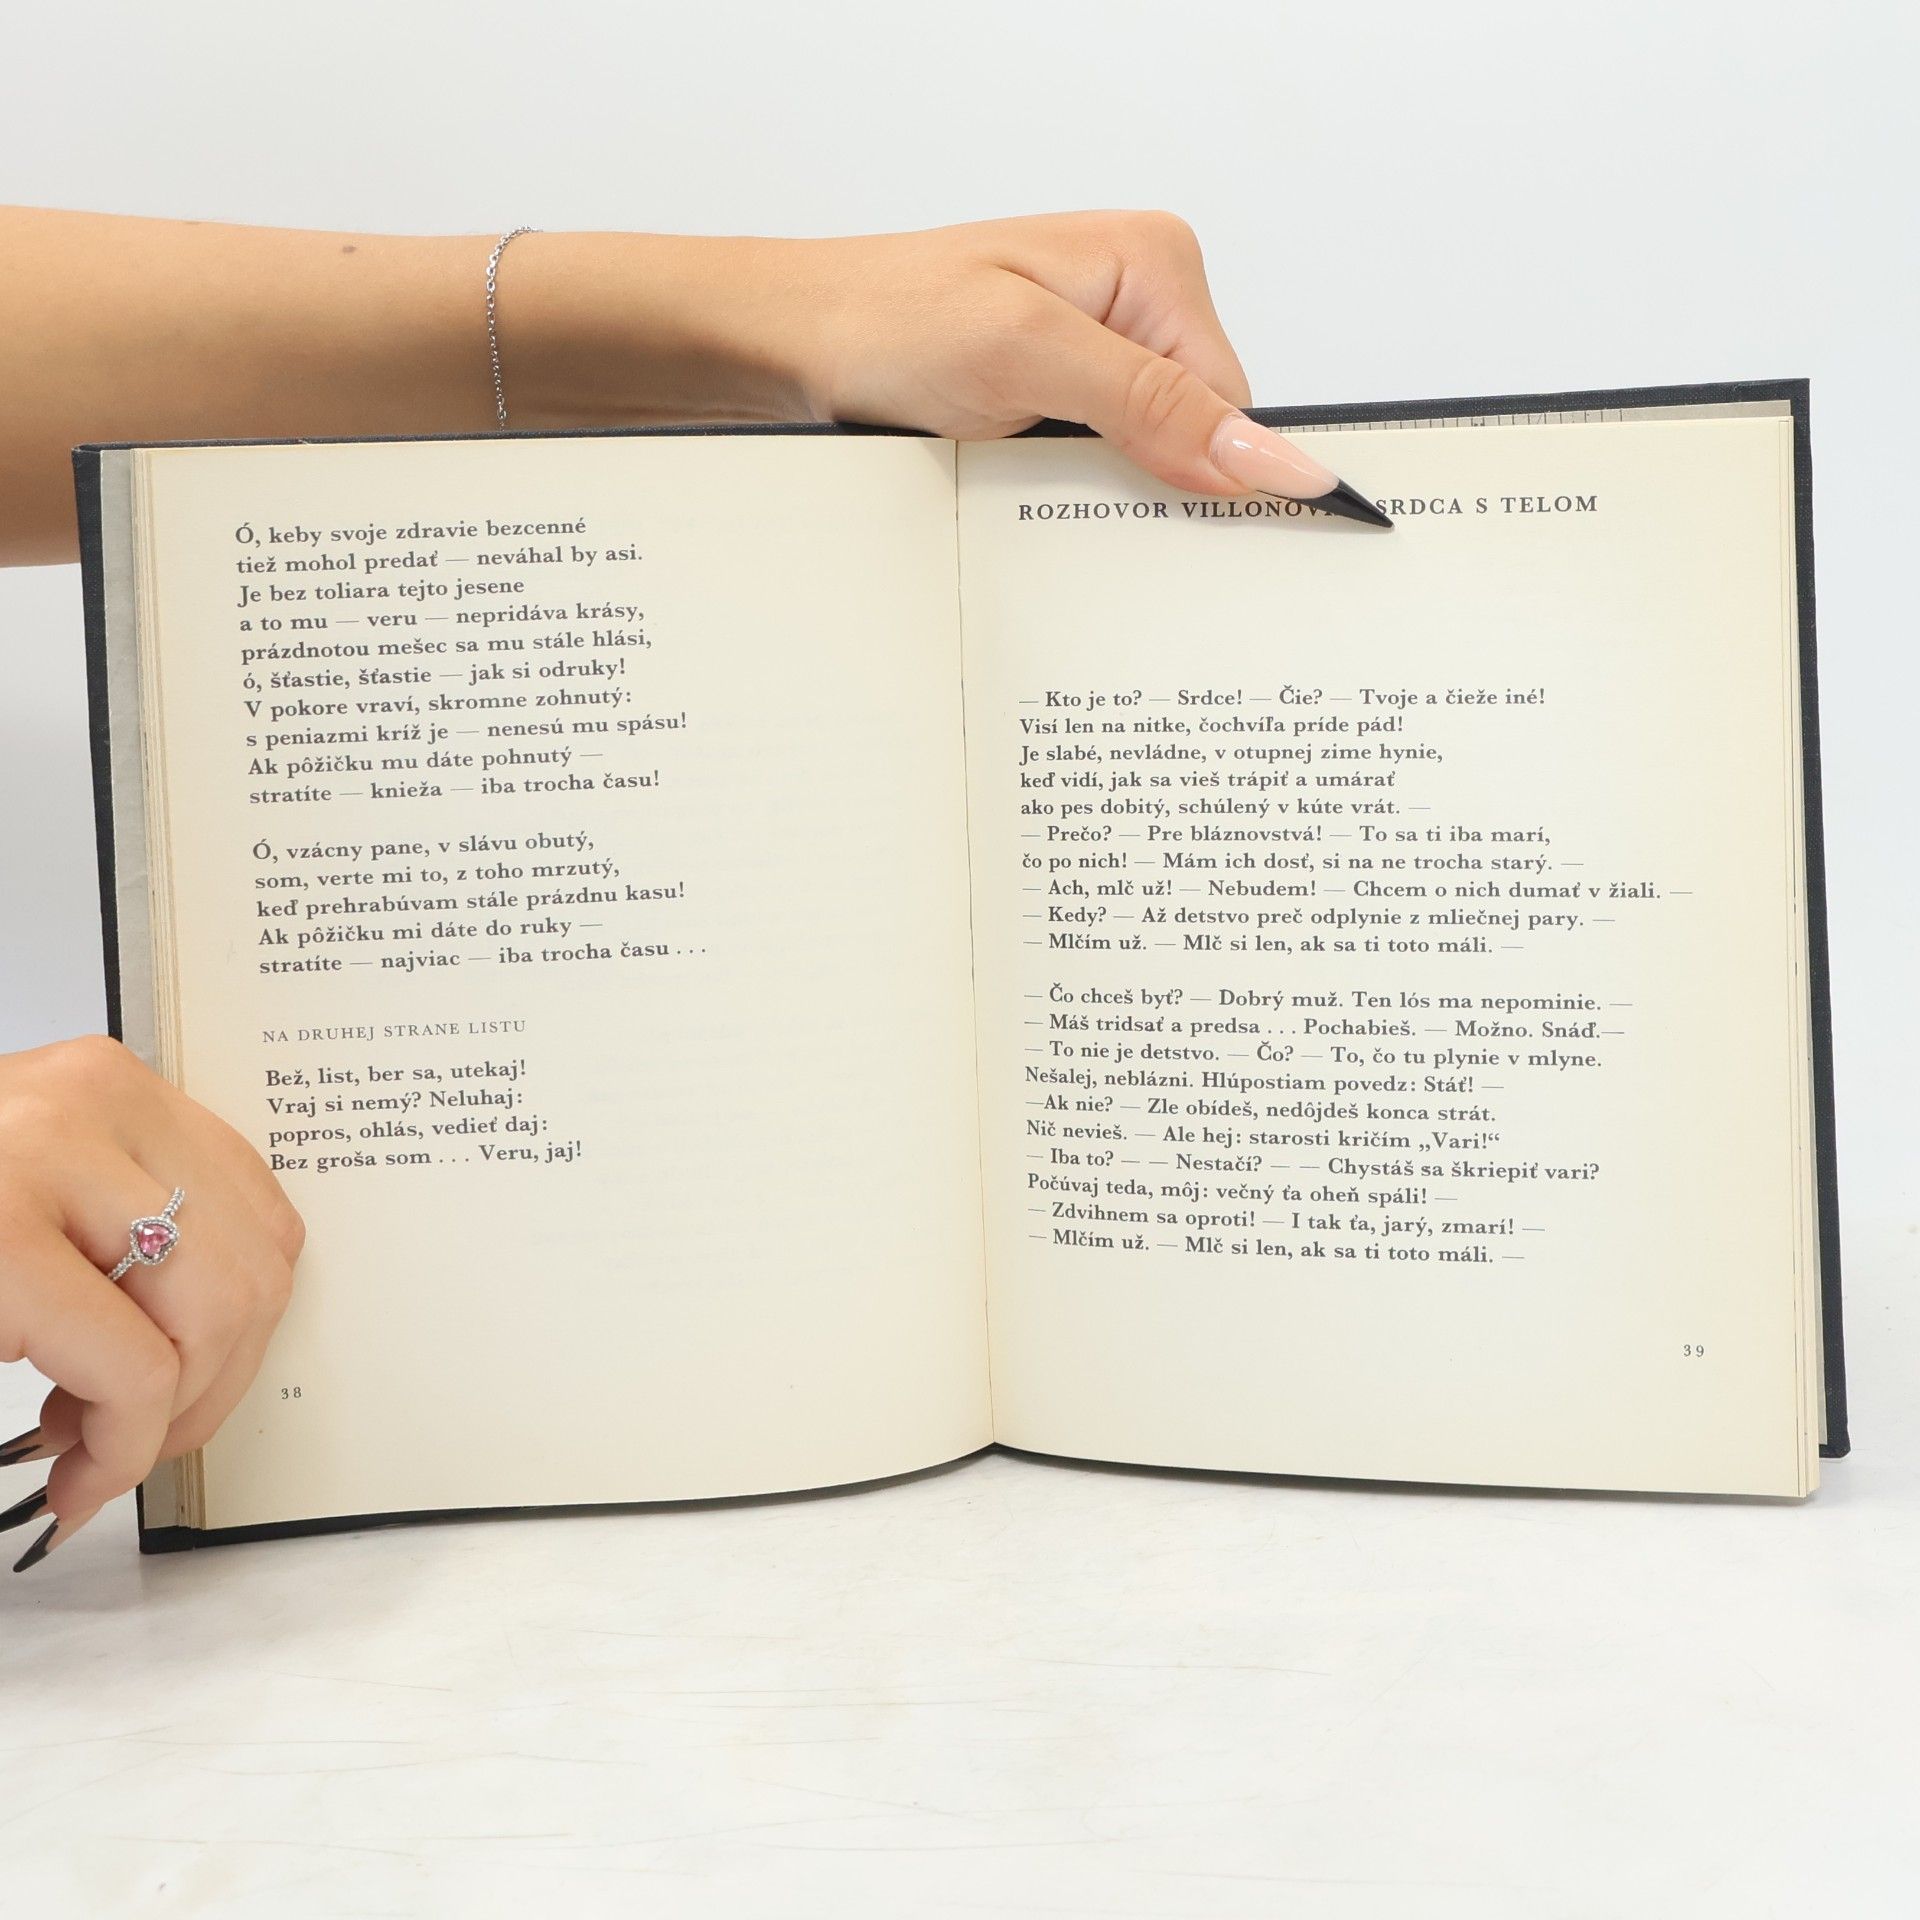 Ó, keby svoje zdravie bezcenné
tiež mohol predať — neváhal by asi.
Je bez toliara tejto jesene
a to mu — veru — nepridáva krásy,
prázdnotou mešec sa mu stále hlási,
ó, šťastie, šťastie — jak si odruky!
V pokore vraví, skromne zohnutý:
s peniazmi kríž je — nenesú mu spásu!
Ak pôžičku mu dáte pohnutý —
stratíte — knieža — iba trocha času!
Ó, vzácny pane, v slávu obutý,
som, verte mi to, z toho mrzutý,
keď prehrabúvam stále prázdnu kasu!
Ak pôžičku mi dáte do ruky —
stratíte — najviac — iba trocha času . . .
NA DRUHEJ STRANE LISTU
Bež, list, ber sa, utekaj!
Vraj si nemý? Neluhaj:
popros, ohlás, vedieť daj:
Bez groša som . . . Veru, jaj!
38
ROZHOVOR SRDCA S TELOM
— Kto je to? — Srdce! — Čie? — Tvoje a čieže iné!
Visí len na nitke, čochvíľa príde pád!
Je slabé, nevládne, v otupnej zime hynie,
keď vidí, jak sa vieš trápiť a umárať
ako pes dobitý, schúlený v kúte vrát. —
— Prečo? — Pre bláznovstvá! — To sa ti iba marí,
čo po nich! — Mám ich dosť, si na ne trocha starý. —
— Ach, mlč už! — Nebudem! — Chcem o nich dumať v žiali. —
— Kedy? — Až detstvo preč odplynie z mliečnej pary. —
— Mlčím už. — Mlč si len, ak sa ti toto máli. —
— Čo chceš byť? — Dobrý muž. Ten lós ma nepominie. —
— Máš tridsať a predsa . . . Pochabieš. — Možno. Snáď.—
— To nie je detstvo. — Čo? — To, čo tu plynie v mlyne.
Nešalej, neblázni. Hlúpostiam povedz: Stáť! —
—Ak nie? — Zle obídeš, nedôjdeš konca strát.
Nič nevieš. — Ale hej: starosti kričím „Vari!“
— Iba to? — — Nestačí? — — Chystáš sa škriepiť vari?
Počúvaj teda, môj: večný ťa oheň spáli! —
— Zdvihnem sa oproti! — I tak ťa, jarý, zmarí! —
— Mlčím už. — Mlč si len, ak sa ti toto máli. —
39